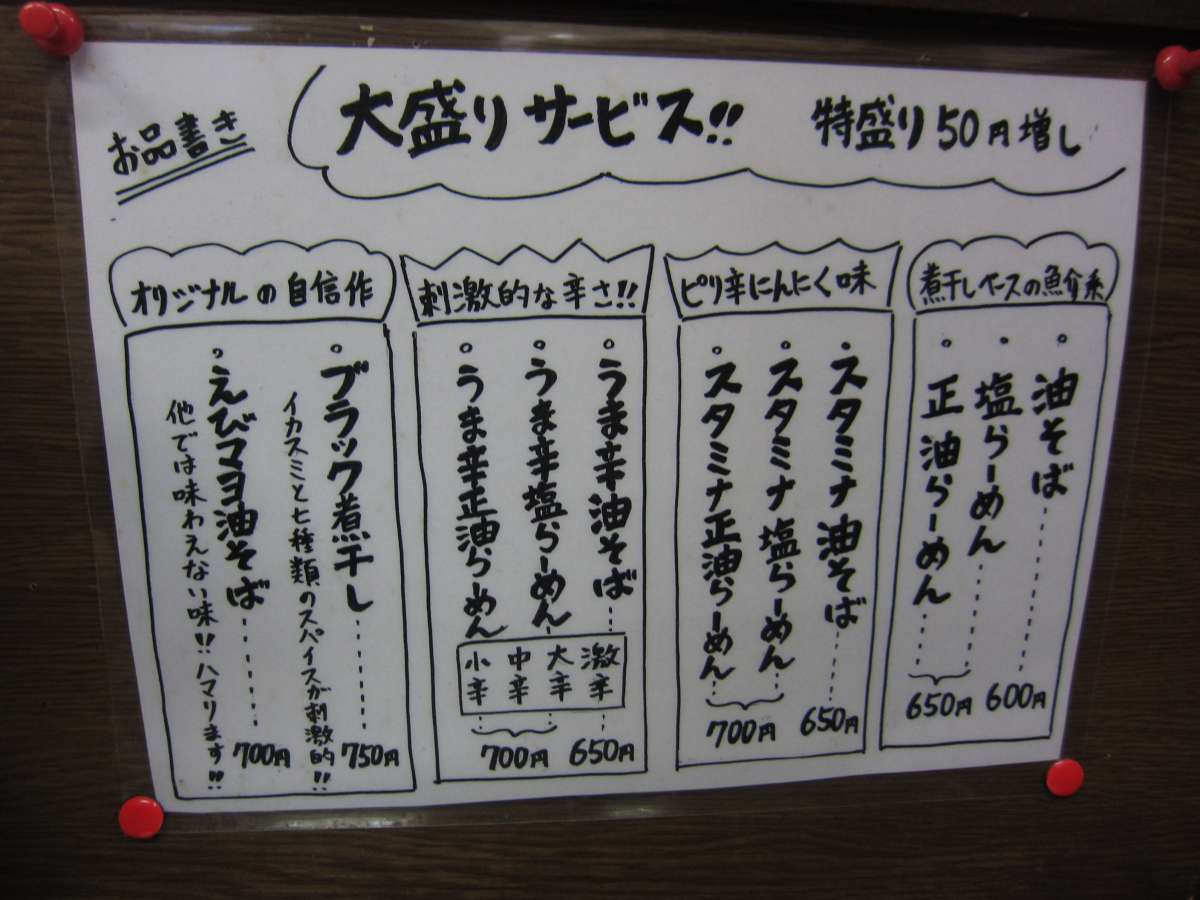 お品書き
大盛りサービス!!
特盛り50円増し
煮干しベースの魚介系
油そば
600円
塩らーめん
正油らーめん
650円
ピリ辛にんにく味
スタミナ油そば
650円
スタミナ塩らーめん
スタミナ正油らーめん
700円
刺激的な辛さ!!
うま辛油そば
650円
うま辛塩らーめん
うま辛正油らーめん
700円
小辛
中辛
大辛
激辛
オリジナルの自信作
ブラック煮干し
750円
イカスミと七種類のスパイスが刺激的!!
えびマヨ油そば
700円
他では味わえない味!!ハマります!!